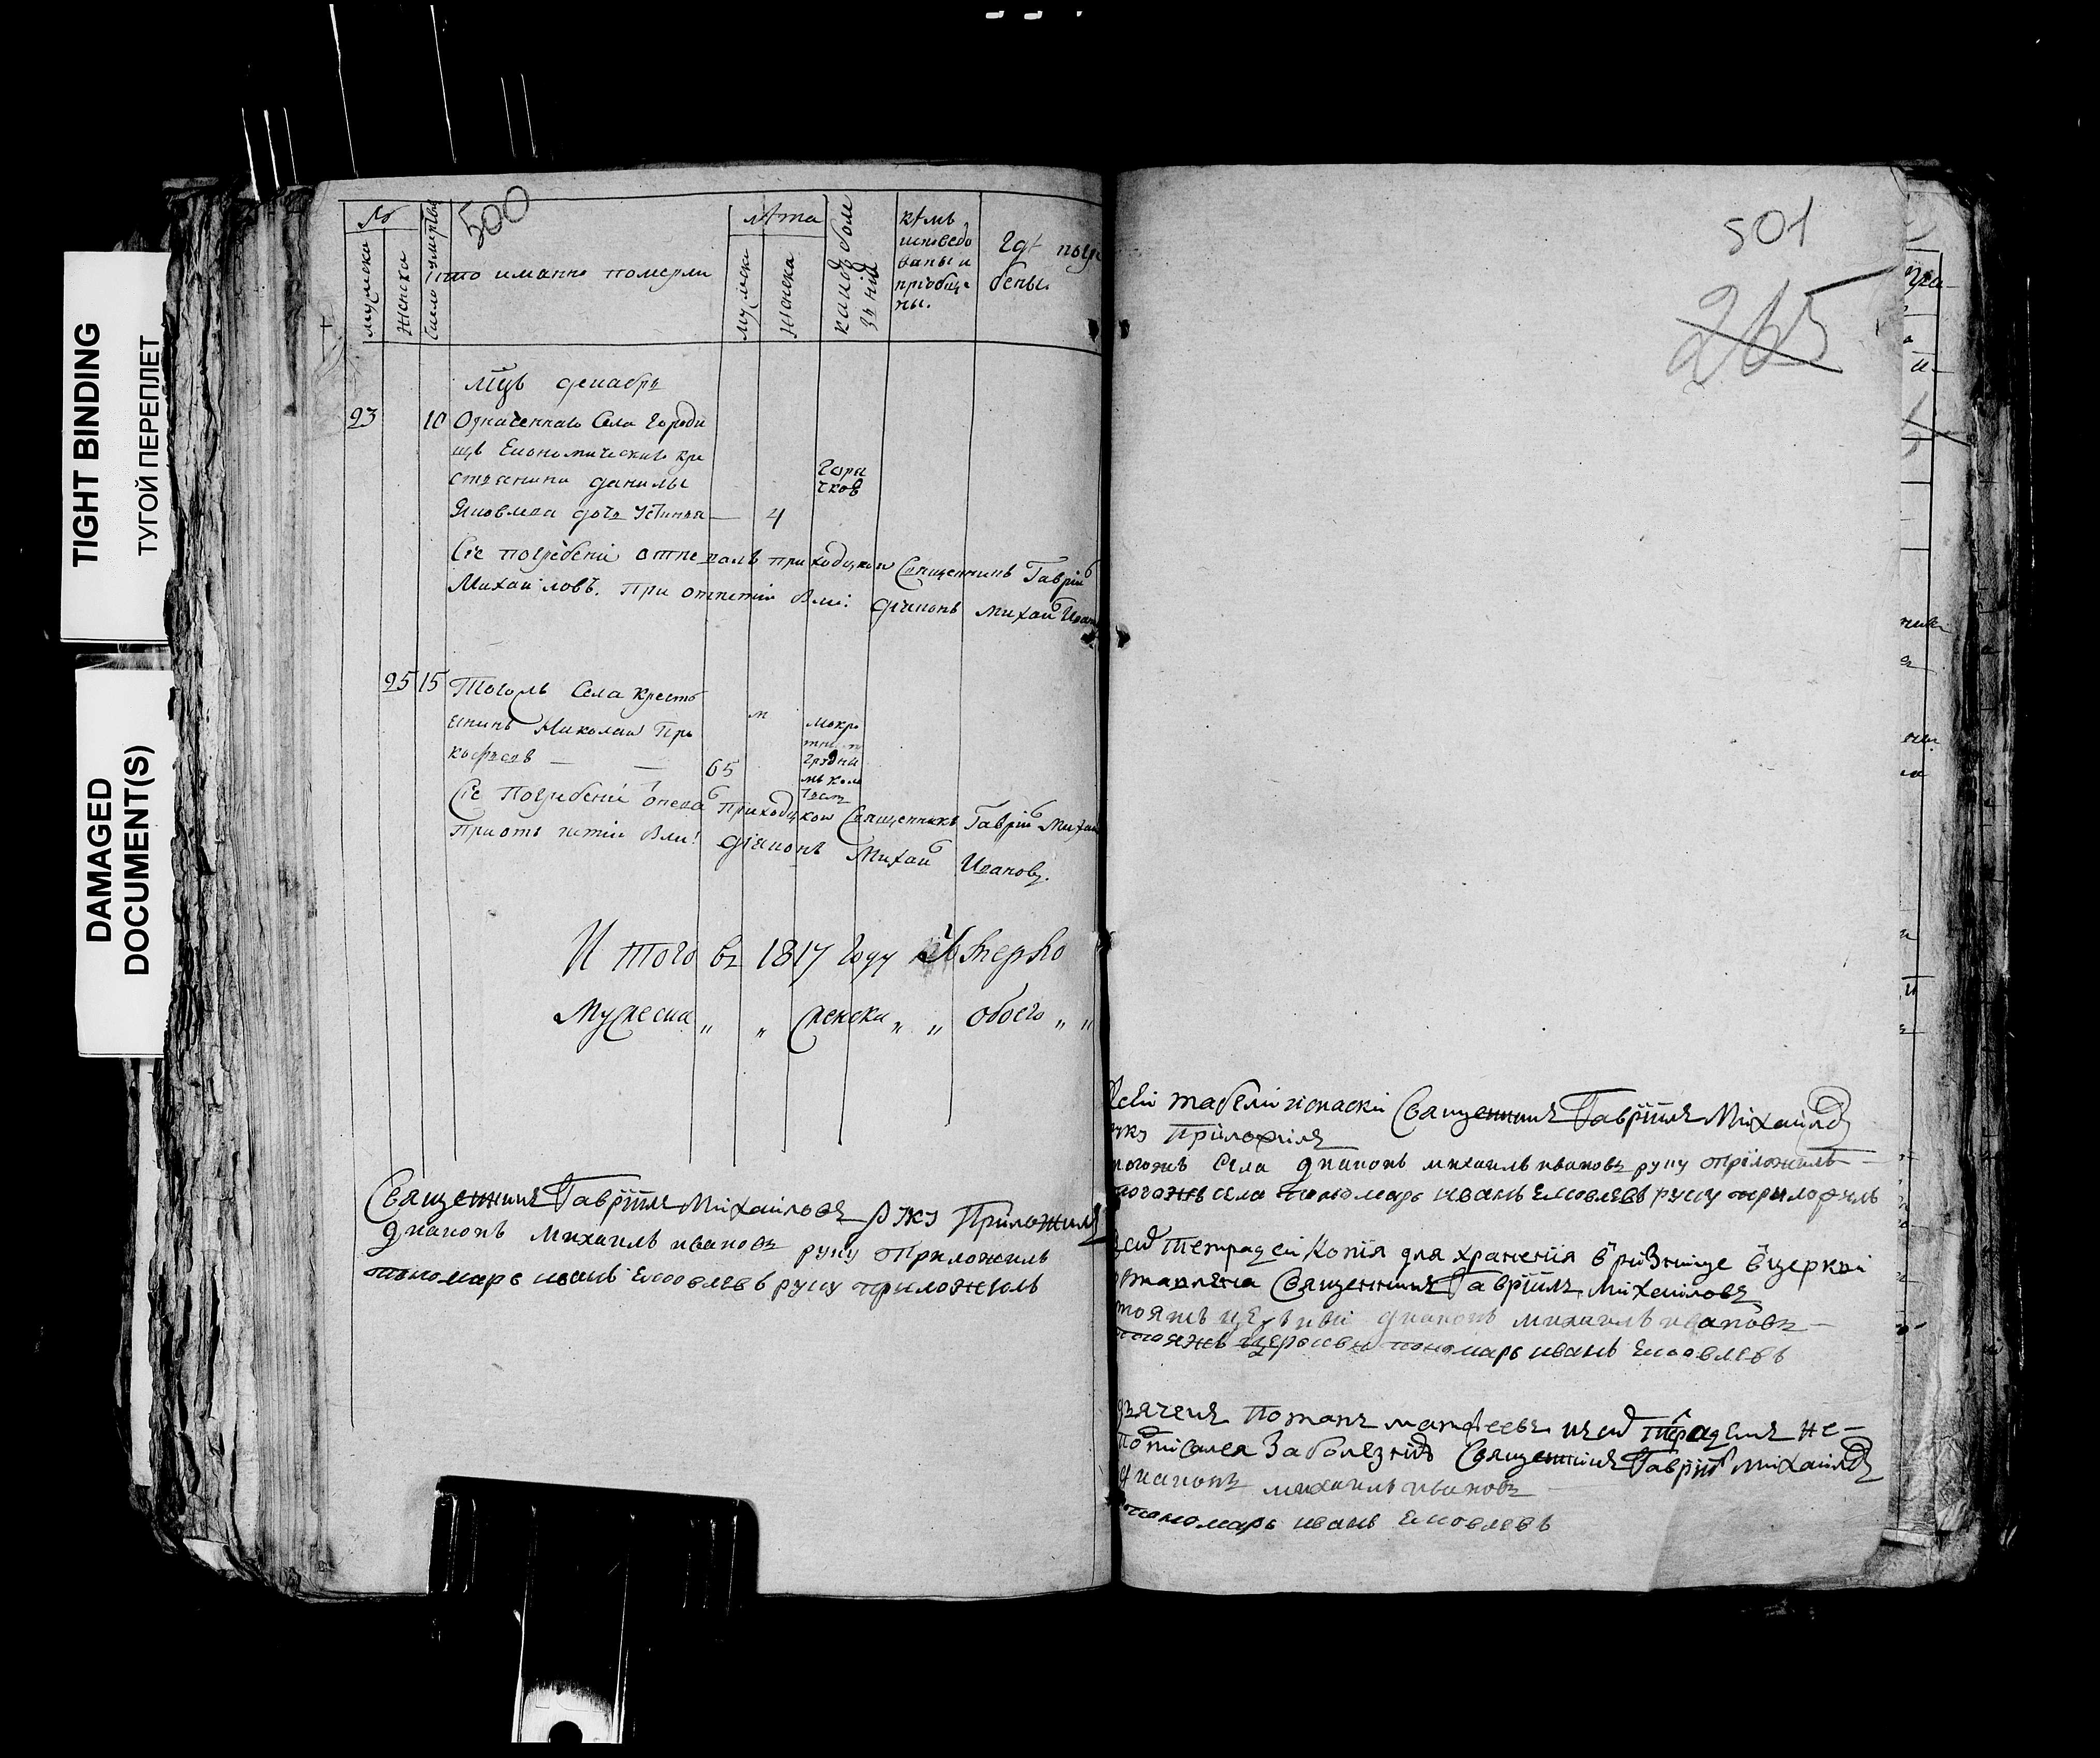 TIGHT BINDING
ТУГОЙ ПЕРЕПЛЕТ
DAMAGED
DOCUMENT(S)
500
№
мужеска
женска
число умертвы
кто имянно померли
лѣта
мужеска
женска
какою боле
знію
кѣмъ
исповедо
ваны и
пріобще
ны.
гдѣ погре
бены.
мцъ декабрь
23 10 Означеннаго Села Городи
щъ Економическаго кре
стьянина данилы
Яковлева дочь Устинья — 4
горя
чкою
Сіе погребеніе отпевалъ приходцкои Священникъ Гавріил
Михаиловъ. При отпетіи были: діяконъ Михаил Иван
25 15 Тогожъ Села кресть
янинъ Николаи Про
кофьевъ — — 65
мокро
тн
грудни
мъ кол
Сіе Погребеніе отпевал Приходцкои Священникъ Гавріил Михаи
При отъ петіи были: діяконъ Михаил Ивановъ.
И того въ 1817 году умерло
Мужеска „ „ женска „ „ обоего „ „
Священникъ Гавріилъ Михаиловъ руку Приложилъ
диаконъ михаилъ ивановъ руку приложилъ
пономарь иванъ Ековлевъ руку приложилъ
501
265
Священникъ Гавріилъ Михаиловъ
руку Приложилъ
тогожъ Села диаконъ михаилъ ивановъ руку приложилъ
тогожъ села пономарь иванъ Ековлевъ руку приложилъ
тетрадеи Копія для храненія в ризнице в церкви
оставлена Священникъ Гавріилъ Михаиловъ
тояжъ церкви диаконъ михаилъ ивановъ
тояжъ церкви пономарь иванъ Ековлевъ
дьячекъ Потапъ матфеевъ къ сей тетраде не-
подписался За болезнію Священникъ Гавріил Михаиловъ
диаконъ михаилъ ивановъ
пономарь иванъ Ековлевъ